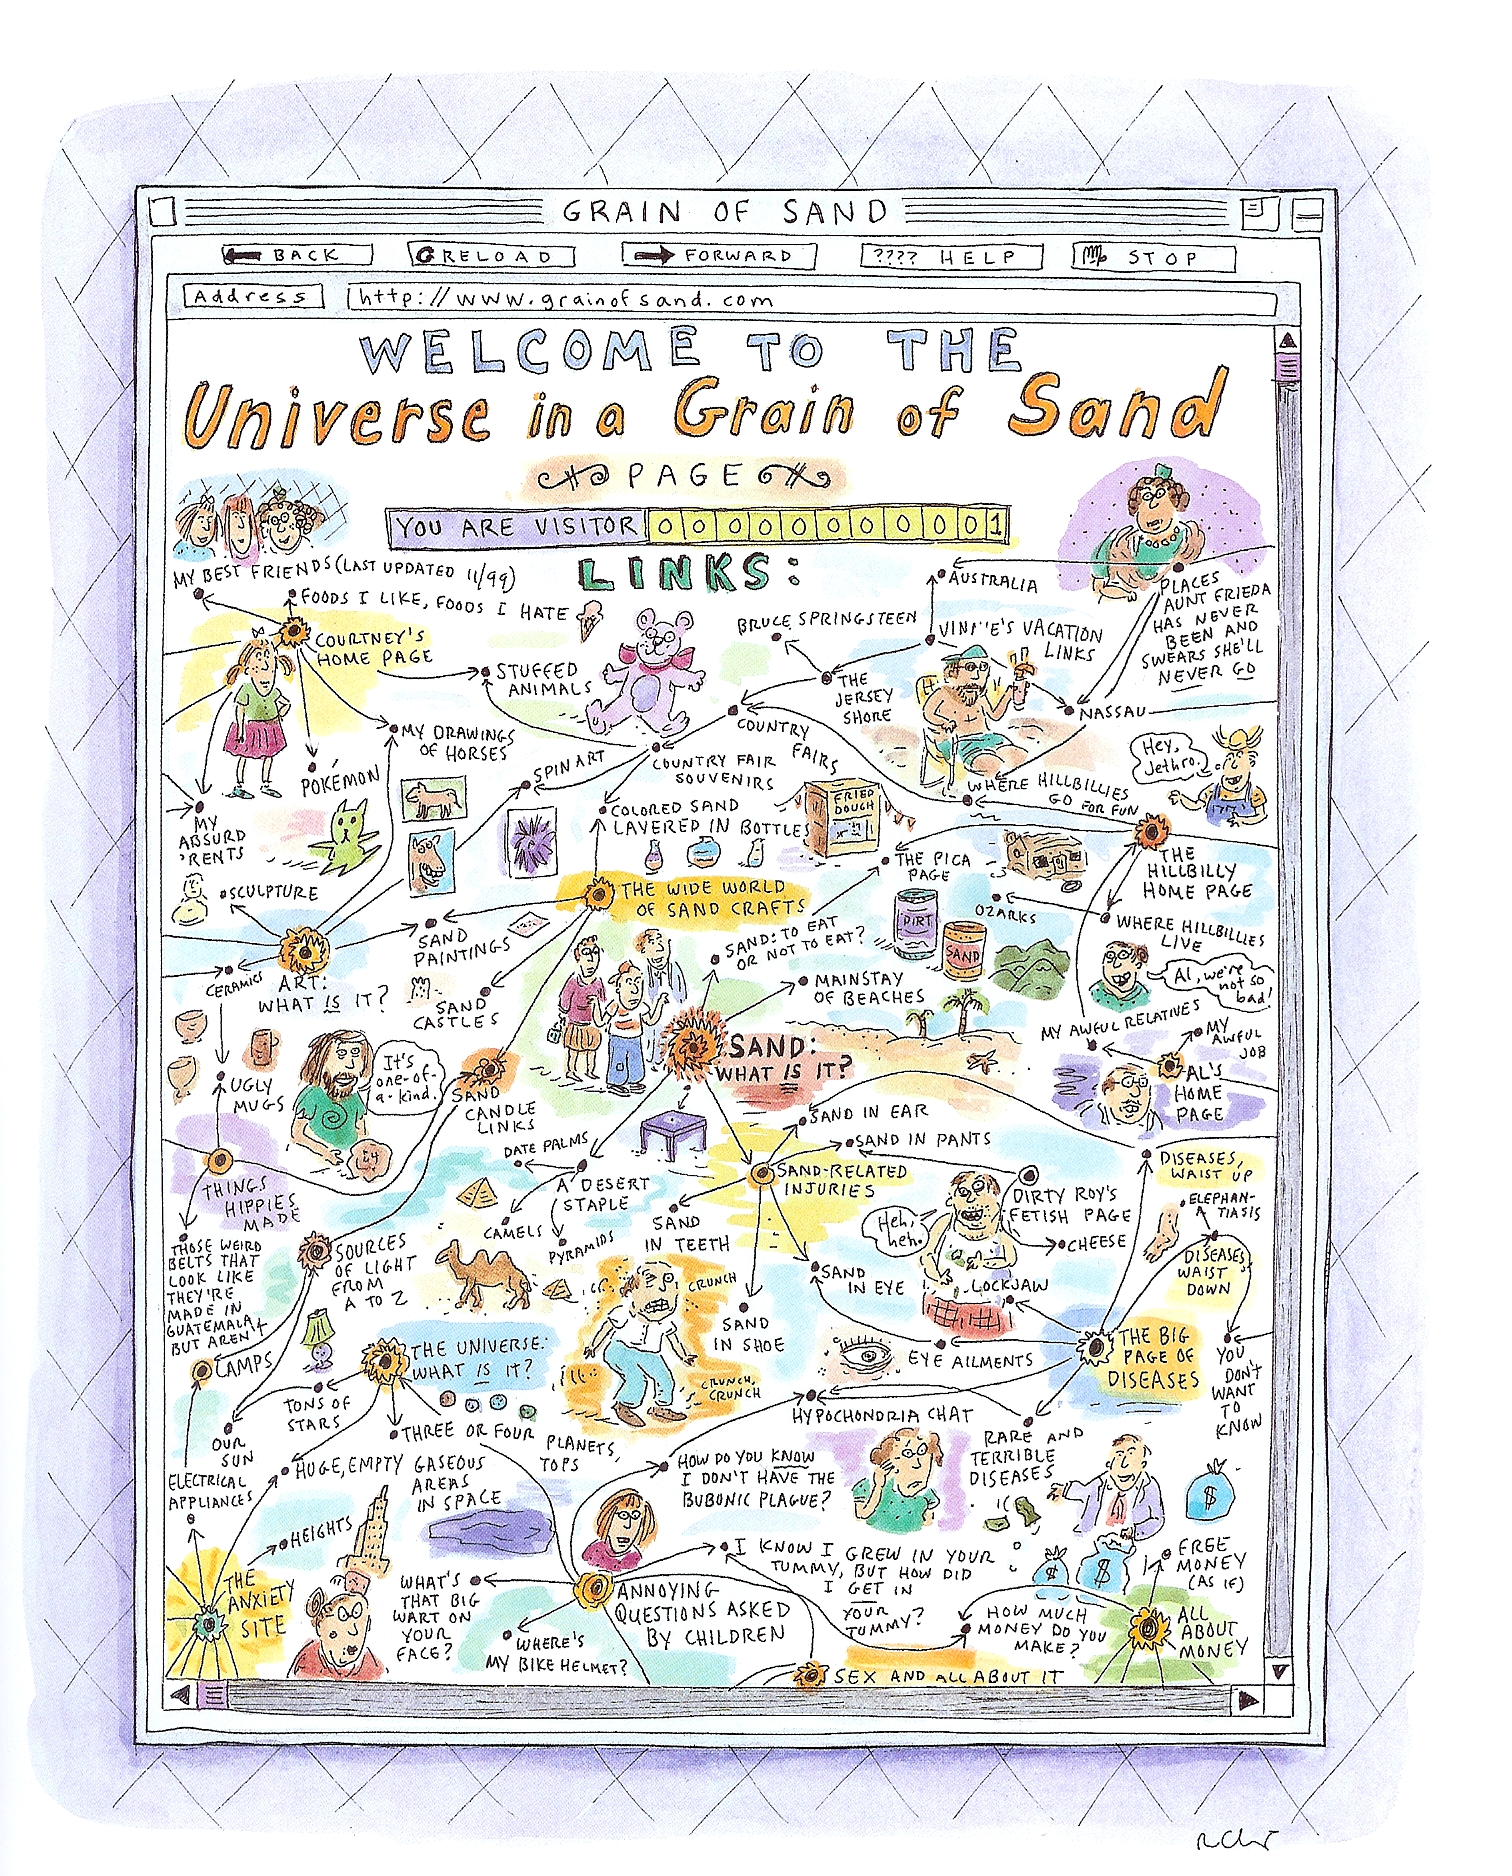 GRAIN OF SAND
BACK
RELOAD
FORWARD
???? HELP
STOP
Address
http://www.grainofsand.com
WELCOME TO THE
Universe in a Grain of Sand
PAGE
YOU ARE VISITOR 00000000001
LINKS:
MY BEST FRIENDS (LAST UPDATED 11/99)
FOODS I LIKE, FOODS I HATE
COURTNEY'S
HOME PAGE
STUFFED
ANIMALS
MY DRAWINGS
OF HORSES
POKÉMON
MY
ABSURD
'RENTS
BRUCE SPRINGSTEEN
AUSTRALIA
VINNIE'S VACATION
LINKS
THE
JERSEY
SHORE
PLACES
AUNT FRIEDA
HAS NEVER
BEEN AND
SWEARS SHE'LL
NEVER GO
NASSAU
COUNTRY
FAIRS
COUNTRY FAIR
SOUVENIRS
SPIN ART
COLORED SAND
LAYERED IN BOTTLES
FRIED
DOUGH
WHERE HILLBILLIES
GO FOR FUN
Hey,
Jethro.
THE
HILLBILLY
HOME PAGE
THE PICA
PAGE
OZARKS
WHERE HILLBILLIES
LIVE
SCULPTURE
THE WIDE WORLD
OF SAND CRAFTS
SAND
PAINTINGS
SAND
CASTLES
CERAMICS
ART:
WHAT IS IT?
SAND: TO EAT
OR NOT TO EAT?
DIRT
SAND
MAINSTAY
OF BEACHES
Al, we're
not so
bad!
MY AWFUL RELATIVES
MY
AWFUL
JOB
AL'S
HOME
PAGE
SAND:
WHAT IS IT?
UGLY
MUGS
It's
one-of-
a-kind.
SAND
CANDLE
LINKS
SAND IN EAR
SAND IN PANTS
SAND-RELATED
INJURIES
DATE PALMS
A DESERT
STAPLE
CAMELS
PYRAMIDS
SAND
IN TEETH
SAND
IN SHOE
SAND
IN EYE
THINGS
HIPPIES
MADE
THOSE WEIRD
BELTS THAT
LOOK LIKE
THEY'RE
MADE IN
GUATEMALA,
BUT AREN'T
SOURCES
OF LIGHT
FROM
A TO Z
DIRTY ROY'S
FETISH PAGE
Heh,
heh.
CHEESE
DISEASES,
WAIST UP
ELEPHAN-
TIASIS
DISEASES,
WAIST
DOWN
LOCKJAW
EYE AILMENTS
THE BIG
PAGE OF
DISEASES
YOU
DON'T
WANT
TO
KNOW
CRUNCH
CRUNCH,
CRUNCH
LAMPS
THE UNIVERSE:
WHAT IS IT?
TONS OF
STARS
OUR
SUN
THREE OR FOUR PLANETS,
TOPS
HUGE, EMPTY GASEOUS
AREAS
IN SPACE
HYPOCHONDRIA CHAT
RARE AND
TERRIBLE
DISEASES
ELECTRICAL
APPLIANCES
HEIGHTS
THE
ANXIETY
SITE
HOW DO YOU KNOW
I DON'T HAVE THE
BUBONIC PLAGUE?
I KNOW I GREW IN YOUR
TUMMY, BUT HOW DID
I GET IN
YOUR
TUMMY?
WHAT'S
THAT BIG
WART ON
YOUR
FACE?
WHERE'S
MY BIKE HELMET?
ANNOYING
QUESTIONS ASKED
BY CHILDREN
HOW MUCH
MONEY DO YOU
MAKE?
$
$
$
FREE
MONEY
(AS IF)
ALL
ABOUT
MONEY
SEX AND ALL ABOUT IT
R Chast